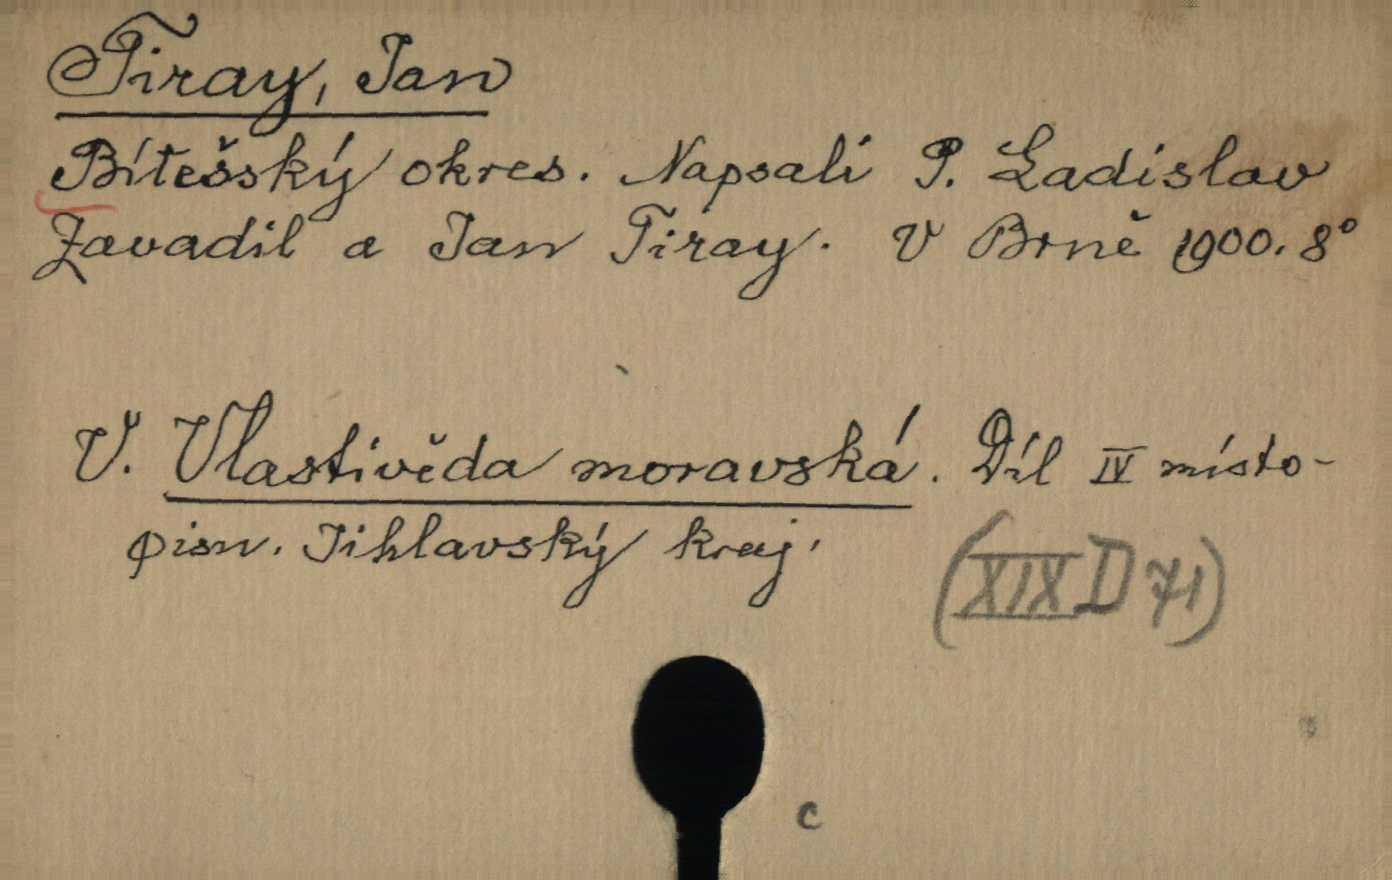 Tiray, Jan
Bítešský okres. Napsali P. Ladislav
Zavadil a Jan Tiray. V Brně 1900. 8°
V. Vlastivěda moravská. Díl IV místo-
pisn. Jihlavský kraj.
(XIX D 71)
c